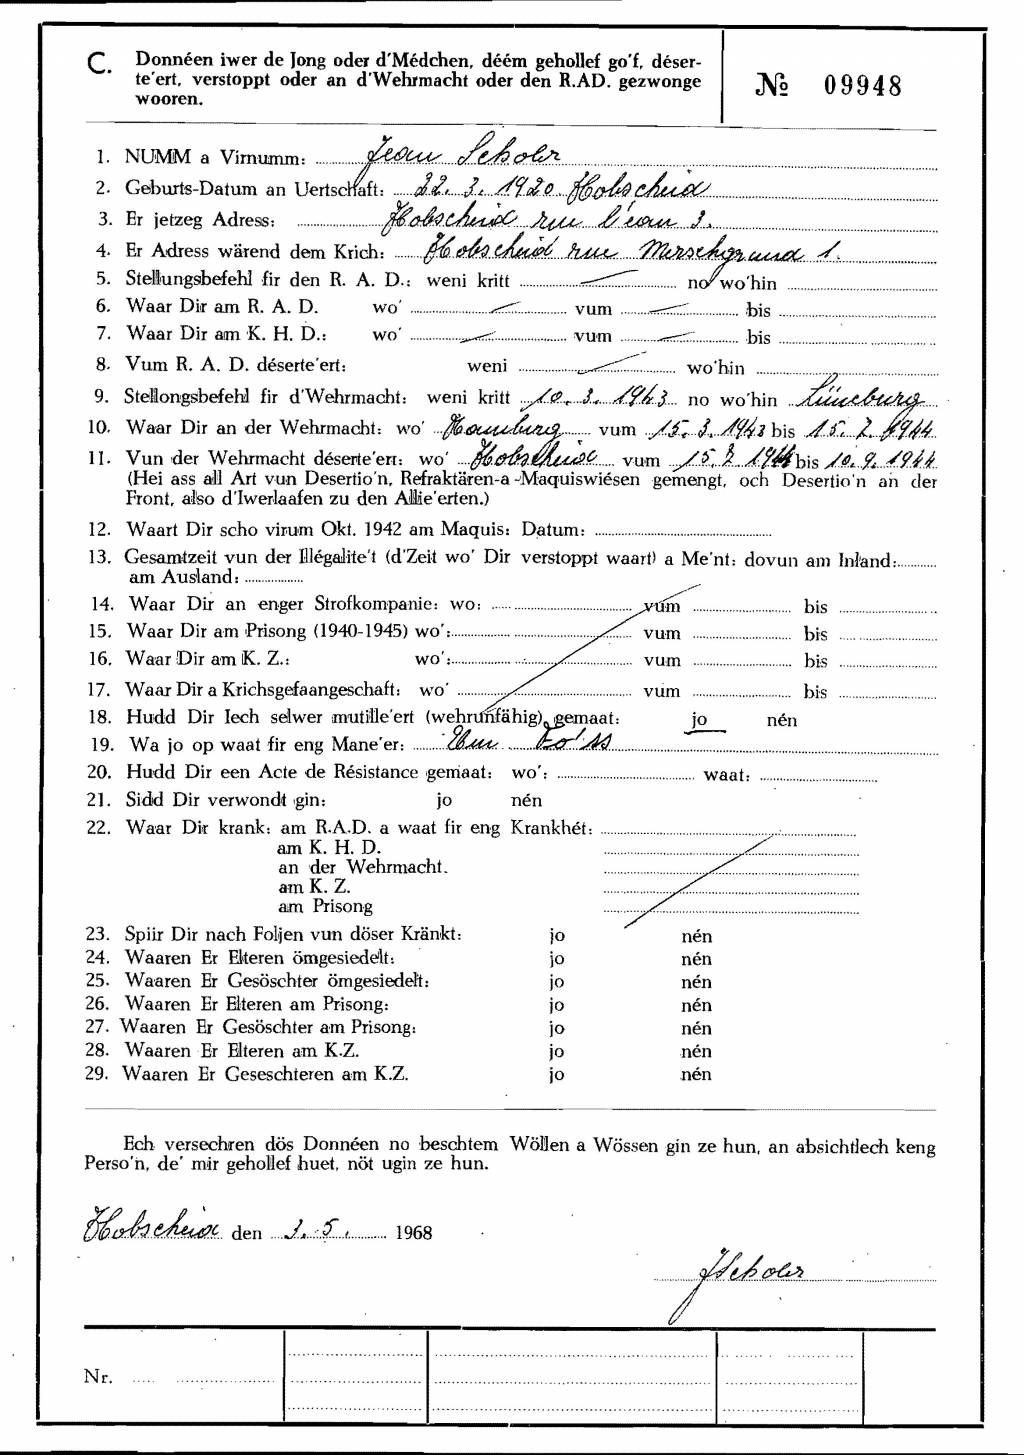 C. Donnéen iwer de Jong oder d'Médchen, déém gehollef go'f, déser-
te'ert, verstoppt oder an d'Wehrmacht oder den R.AD. gezwonge
wooren.
№ 09948
1. NUMM a Virnumm: Jean Scholer
2. Geburts-Datum an Uertschaft: 22. 3. 1920 Hobscheid
3. Er jetzeg Adress: Hobscheid rue l'eau 3.
4. Er Adress wärend dem Krich: Hobscheid rue Merschgrund 1.
5. Stellungsbefehl fir den R. A. D.: weni kritt no wo'hin
6. Waar Dir am R. A. D. wo' vum bis
7. Waar Dir am K. H. D.: wo' vum bis
8. Vum R. A. D. déserte'ert: weni wo'hin
9. Stellongsbefehl fir d'Wehrmacht: weni kritt 10. 3. 1943 no wo'hin Lüneburg
10. Waar Dir an der Wehrmacht: wo' Hamburg vum 15. 3. 1943 bis 15. 7. 1944
11. Vun der Wehrmacht déserte'ert: wo' Hobscheid vum 15. 7. 1944 bis 10. 9. 1944
(Hei ass all Art vun Desertio'n, Refraktären-a-Maquiswiésen gemengt, och Desertio'n an der
Front, also d'Iwerlaafen zu den Allie'erten.)
12. Waart Dir scho virum Okt. 1942 am Maquis: Datum:
13. Gesamtzeit vun der Illégalite't (d'Zeit wo' Dir verstoppt waart) a Me'nt: dovun am Inland:
am Ausland:
14. Waar Dir an enger Strofkompanie: wo: vum bis
15. Waar Dir am Prisong (1940-1945) wo': vum bis
16. Waar Dir am K. Z.: wo': vum bis
17. Waar Dir a Krichsgefaangeschaft: wo' vum bis
18. Hudd Dir Iech selwer mutille'ert (wehrunfähig) gemaat: jo nén
19. Wa jo op waat fir eng Mane'er: Em Fo'ss
20. Hudd Dir een Acte de Résistance gemaat: wo': waat:
21. Sidd Dir verwondt gin: jo nén
22. Waar Dir krank: am R.A.D. a waat fir eng Krankhét:
am K. H. D.
an der Wehrmacht.
am K. Z.
am Prisong
23. Spiir Dir nach Foljen vun döser Kränkt: jo nén
24. Waaren Er Elteren ömgesiedelt: jo nén
25. Waaren Er Gesöschter ömgesiedelt: jo nén
26. Waaren Er Elteren am Prisong: jo nén
27. Waaren Er Gesöschter am Prisong: jo nén
28. Waaren Er Elteren am K.Z. jo nén
29. Waaren Er Geseschteren am K.Z. jo nén
Ech versechren dös Donnéen no beschtem Wöllen a Wössen gin ze hun, an absichtlech keng
Perso'n, de' mir gehollef huet, nöt ugin ze hun.
Hobscheid den 3. 5. 1968
JScholer
Nr.